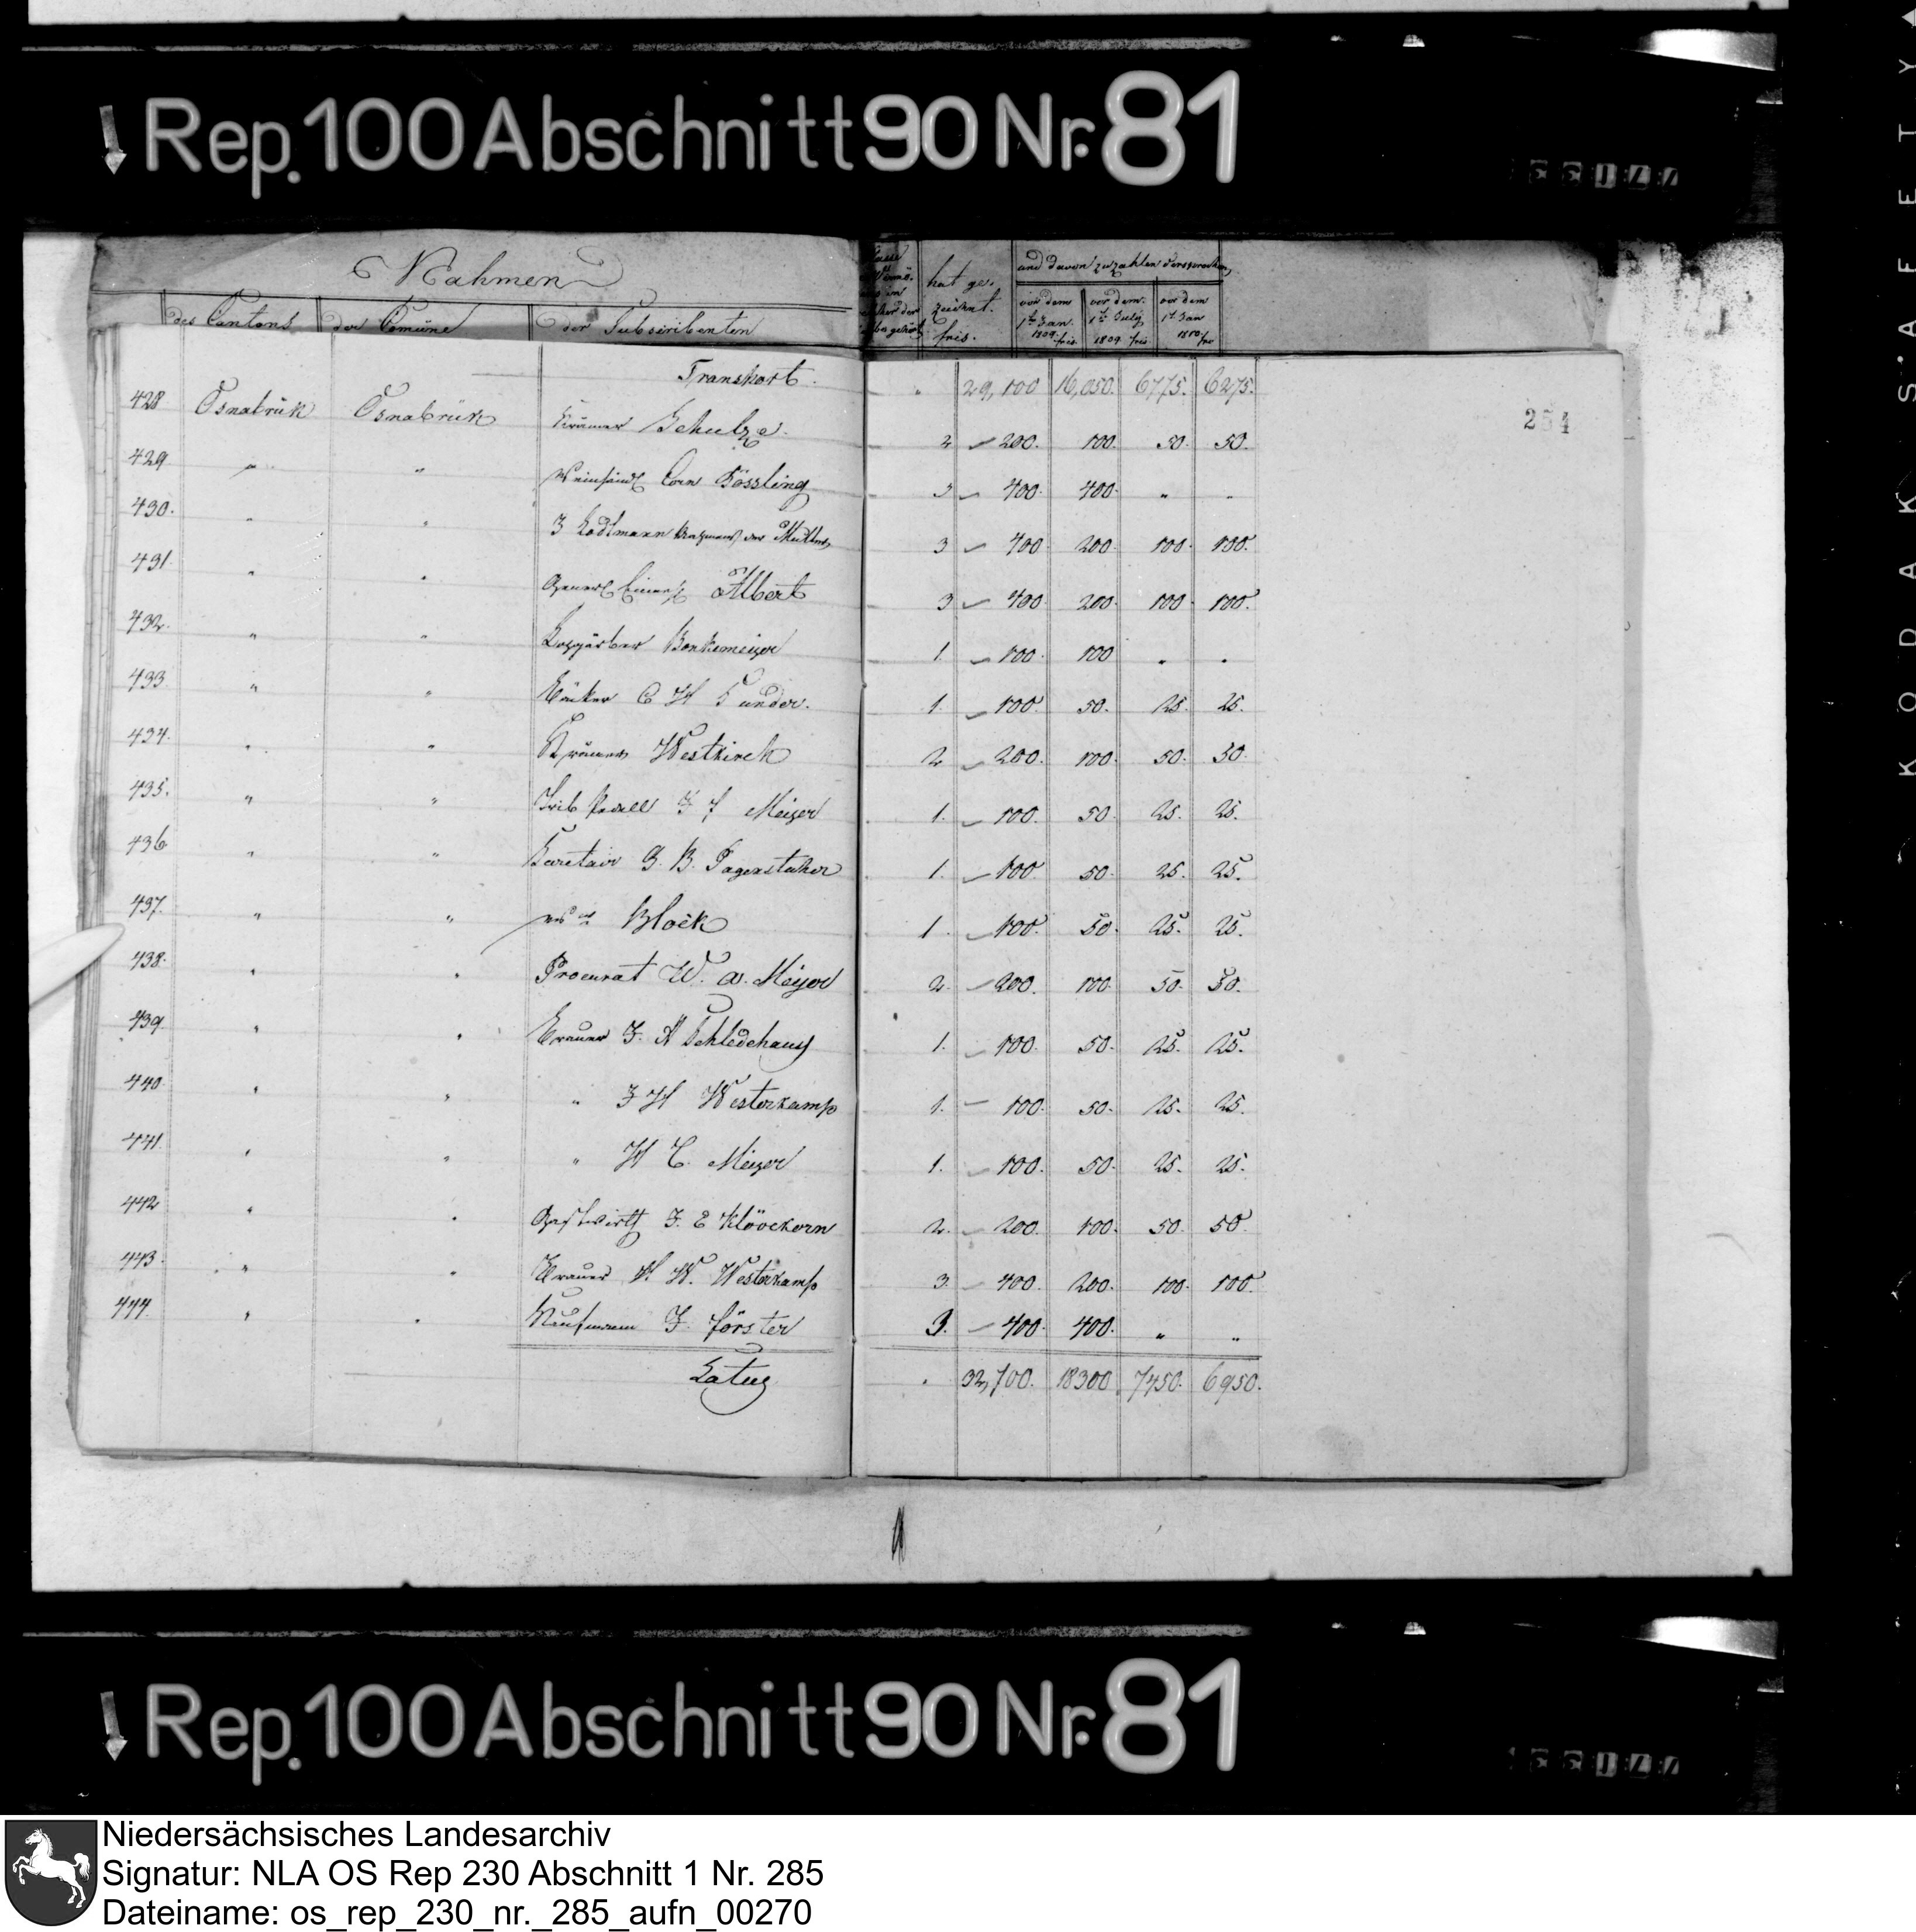 Rep. 100 Abschnitt 90 Nr. 81
KODAK SAFETY
Nahmen
des Cantons der Comüne der Subscribenten
hat ge-
zeichnet.
frcs.
und davon zu zahlen versprochen,
vor dem 1t Jan. 1809 frcs. vor dem 1t July 1809 frcs vor dem 1t Jan 1810 frc
254
Transport. " 29,100 16,050. 6775. 6275.
428 Osnabrük Osnabrük Krämer Schulze. 2 200. 100. 50. 50.
429 " " Weinhändl Corn Kössling 3 400. 400. " "
430. " " Lodtmann Mutter 3 400. 200. 100. 100.
431. " " Albert 3 400 200. 100. 100.
432. " " Lohgärber Bonkemeiyer 1. 100. 100 " "
433. " " Bäcker C H Sunder. 1. 100. 50. 25. 25.
434. " " Krämer Westkirch 2 200. 100. 50. 50.
435. " " Trib. Pedell Meiyer 1. 100. 50. 25. 25.
436 " " Secretair G. B. Pagenstecher 1. 100 50. 25. 25.
437. " " Block 1. 100. 50. 25. 25.
438. " " Procurat W. A. Meyer 2. 200. 100. 50. 50.
439. " " Brauer F. A Schledehaus 1. 100. 50. 25. 25.
440. " " " J H Westerkamp 1. 100. 50. 25. 25.
441. " " " H C. Meiyer 1. 100. 50. 25. 25.
442 " " Gastwirth F. E Klövekorn 2. 200. 100. 50. 50
443. " " Brauer H W. Westerkamp 3. 400. 200. 100. 100.
444. " " Kaufmann J. Förster 3. 400. 400. " "
Latus " 32,700. 18300 7450. 6950.
Rep. 100 Abschnitt 90 Nr. 81
Niedersächsisches Landesarchiv
Signatur: NLA OS Rep 230 Abschnitt 1 Nr. 285
Dateiname: os_rep_230_nr._285_aufn_00270